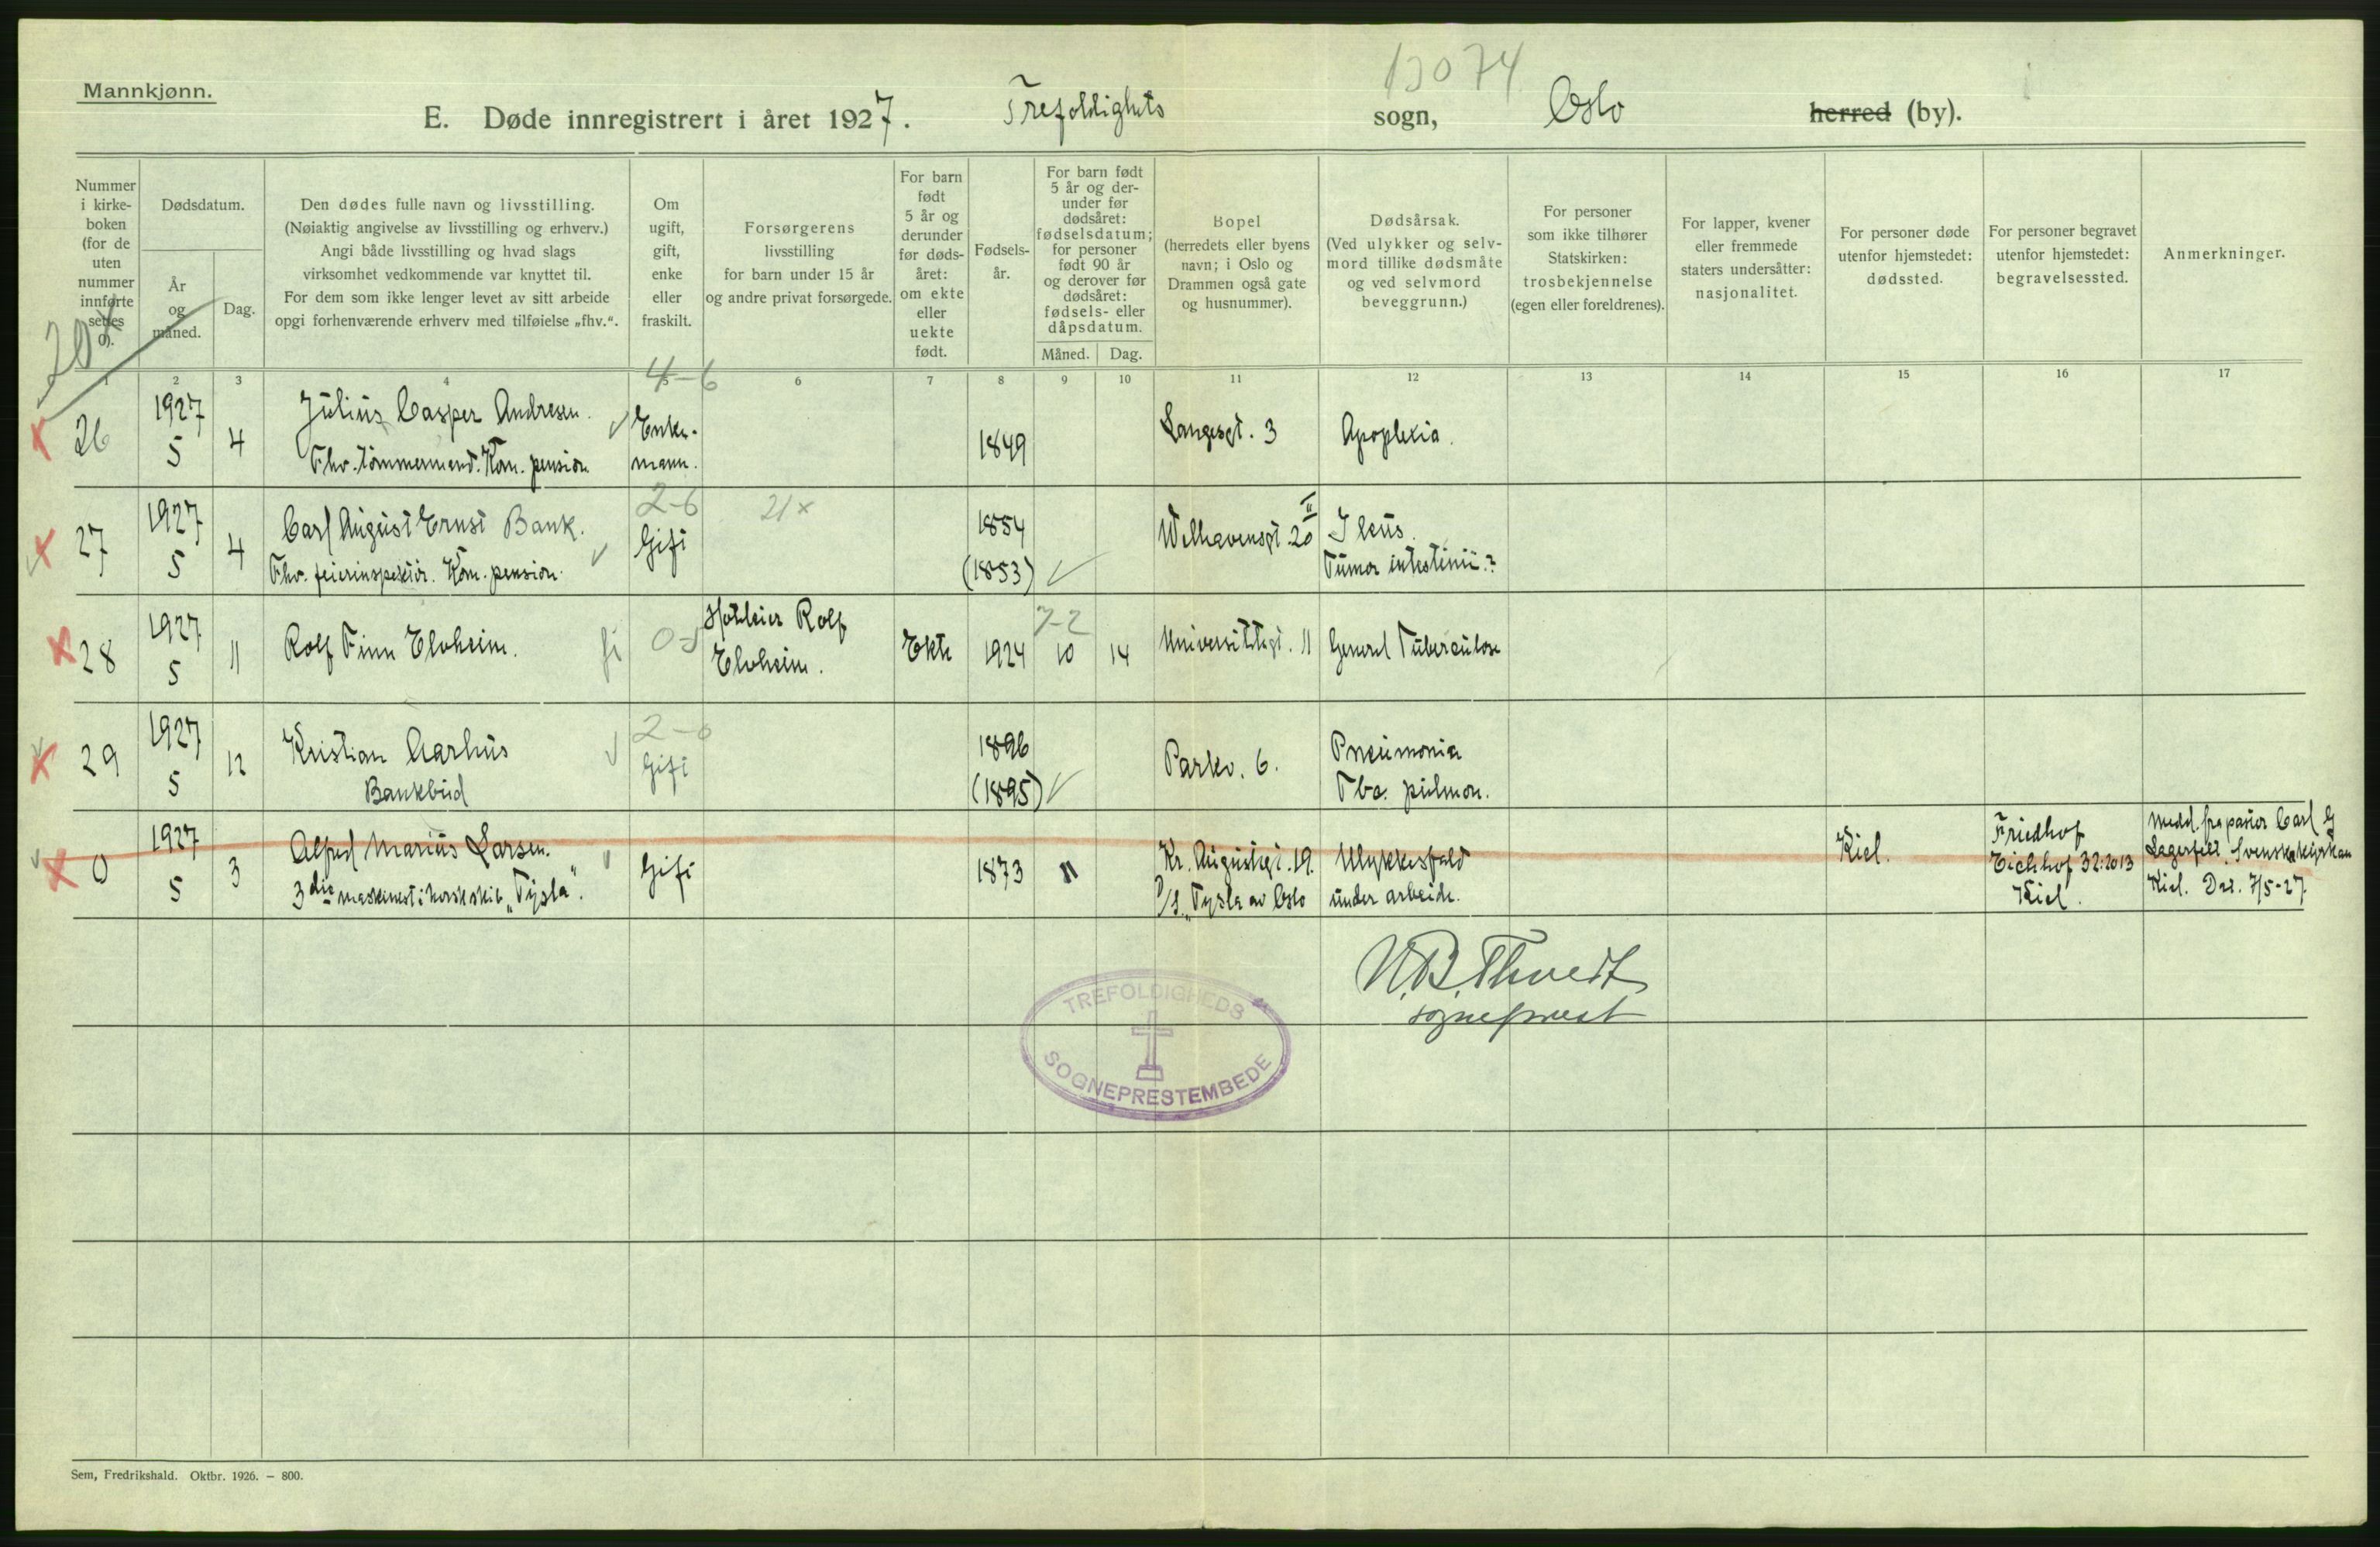 13074
Mannkjønn.
E. Døde innregistrert i året 1927. Trefoldighets sogn, Oslo herred (by).
Nummer
i kirke-
boken
(for de
uten
nummer
innførte
settes
0).
Dødsdatum.
År
og
måned.
Dag.
Den dødes fulle navn og livsstilling.
(Nøiaktig angivelse av livsstilling og erhverv.)
Angi både livsstilling og hvad slags
virksomhet vedkommende var knyttet til.
For dem som ikke lenger levet av sitt arbeide
opgi forhenværende erhverv med tilføielse „fhv.“.
Om
ugift,
gift,
enke
eller
fraskilt.
Forsørgerens
livsstilling
for barn under 15 år
og andre privat forsørgede.
For barn
født
5 år og
derunder
før døds-
året:
om ekte
eller
uekte
født.
Fødsels-
år.
For barn født
5 år og der-
under før
dødsåret:
fødselsdatum;
for personer
født 90 år
og derover før
dødsåret:
fødsels- eller
dåpsdatum.
Måned. Dag.
Bopel
(herredets eller byens
navn; i Oslo og
Drammen også gate
og husnummer).
Dødsårsak.
(Ved ulykker og selv-
mord tillike dødsmåte
og ved selvmord
beveggrunn.)
For personer
som ikke tilhører
Statskirken:
trosbekjennelse
(egen eller foreldrenes).
For lapper, kvener
eller fremmede
staters undersåtter:
nasjonalitet.
For personer døde
utenfor hjemstedet:
dødssted.
For personer begravet
utenfor hjemstedet:
begravelsessted.
Anmerkninger.
1 2 3 4 5 6 7 8 9 10 11 12 13 14 15 16 17
4-6
26 1927 5 4 Julius Casper Andresen.
Fhv. tømmermand. Kom. pension
Enke-
mann.
1849
Langesgt. 3
Apoplexia.
2-6 21x
27 1927 5 4 Carl August Ernst Bank.
Fhv. feierinspektör. Kom. pension.
Gift
1854
(1853)
Welhavensgt 20 II
Ileus.
Tumor intestinii.?
28 1927 5 11 Rolf Finn Elvheim.
0-5
Hotleier Rolf
Elvheim.
Ekte 1924 10 14
7-2
Universitetsgt. 11
Generel Tuberculose
2-6
29 1927 5 12 Kristian Aarhus
Bankbud
Gift
1896
(1895)
Parkv. 6.
Pneumonia
Tbc. pulmon.
0 1927 5 3 Alfred Marius Larsen.
3die maskinist i norsk skib „Tysla“.
Gift
1873 11
Kr. Augustsgt. 19.
D/S. „Tysla av Oslo
Ulykkesfald
under arbeide.
Kiel.
Friedhof
Eichhof 32:2013
Kiel.
Medd. fra pastor Carl G
Lagerfelt, Svenska kyrkan
Kiel. Dat. 7/5-27.
N.B. Thvedt
sogneprest
TREFOLDIGHEDS
SOGNEPRESTEMBEDE
Sem, Fredrikshald. Oktbr. 1926. – 800.